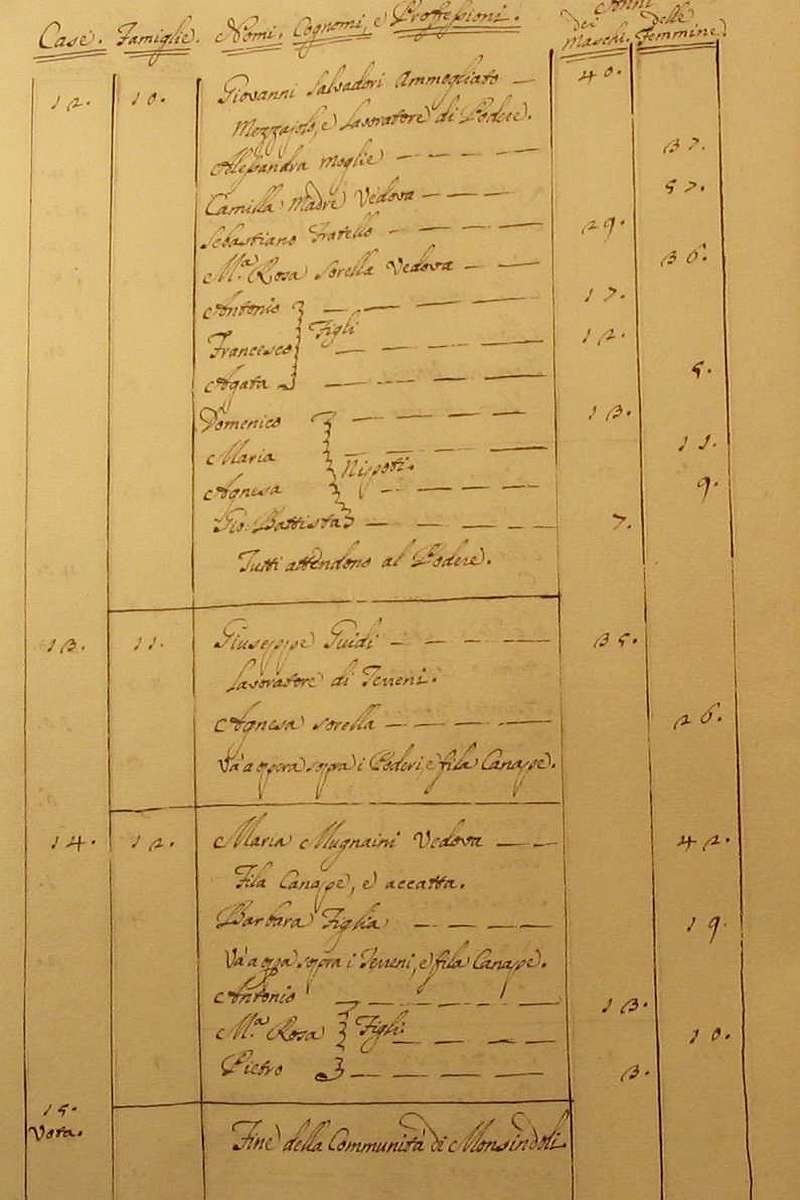 Case. Famiglie. Nomi, Cognomi, e Proffessioni. Anni dei Maschi. delle Femmine.
12. 10. Giovanni Salvadori Ammogliato — 40.
Mezzajolo, e Lavoratore di Podere.
Alessandra Moglie — — — 37.
Camilla Madre Vedova — — — 57.
Sebastiano Fratello — — — — 29.
M.ª Rosa Sorella Vedova — — 36.
Antonio — — — — 17.
Figli
Francesco — — — — 12.
Agata — — — — 5.
Domenico — — — — 13.
Maria — — — — 11.
Nipoti.
Agnesa — — — — 9.
Gio: Battista — — — — 7.
Tutti attendono al Podere.
13. 11. Giuseppe Guidi — — — — 35.
Lavoratore di Terreni.
Agnesa Sorella — — — — 26.
Và a opera sopra i Poderi, e fila Canape.
14. 12. Maria Mugnaini Vedova — — 42.
Fila Canape, e accatta.
Barbara Figlia — — — — 19.
Và a opera sopra i Terreni, e fila Canape.
Antonio — — — — 13.
M.ª Rosa Figli: — — — 10.
Pietro — — — — 3.
15.
Vota.
Fine della Communità di Monsindoli